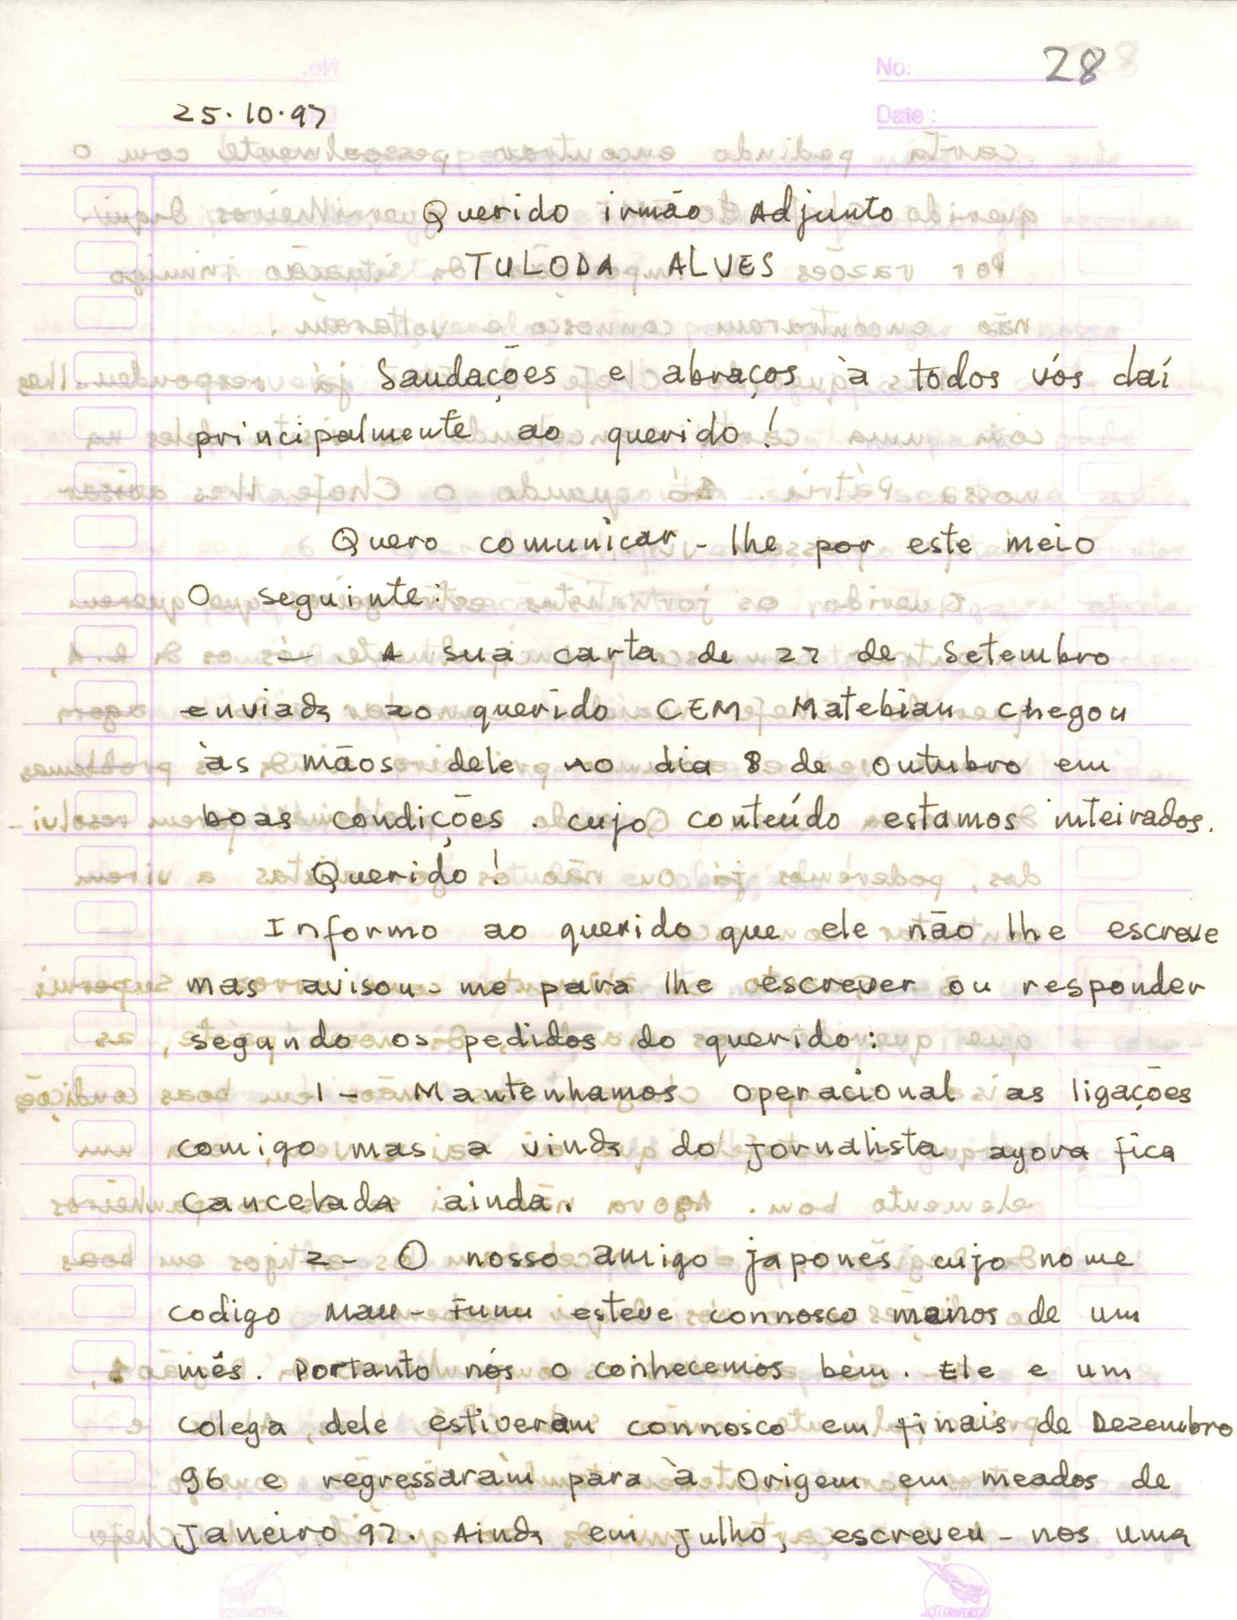 No: 28
25.10.97
Date:
Querido irmão Adjunto
TULODA ALVES
Saudações e abraços à todos vós daí
principalmente ao querido!
Quero comunicar-lhe por este meio
O seguinte:
- A sua carta de 27 de Setembro
enviada ao querido CEM Matebian chegou
às mãos dele no dia 8 de outubro em
boas condições. cujo conteúdo estamos inteirados.
Querido!
Informo ao querido que ele não lhe escreve
mas avisou-me para lhe escrever ou responder
segundo os pedidos do querido:
1- Mantenhamos operacional as ligações
comigo mas a vinda do jornalista agora fica
cancelada ainda.
2- O nosso amigo japonês cujo nome
codigo Mau-Funu esteve connosco menos de um
mês. Portanto nós o conhecemos bem. Ele e um
colega dele estiveram connosco em finais de Dezembro
96 e regressaram para à Origem em meados de
Janeiro 97. Ainda em julho, escreveu-nos uma